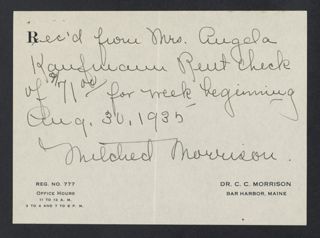 Rec'd from Mrs. Angela
Kaufmann Rent check
of $71.00 for week beginning
Aug. 30, 1935
Mildred Morrison.
REG. NO. 777
OFFICE HOURS
11 TO 12 A. M.
2 TO 4 AND 7 TO 8 P. M.
DR. C. C. MORRISON
BAR HARBOR, MAINE